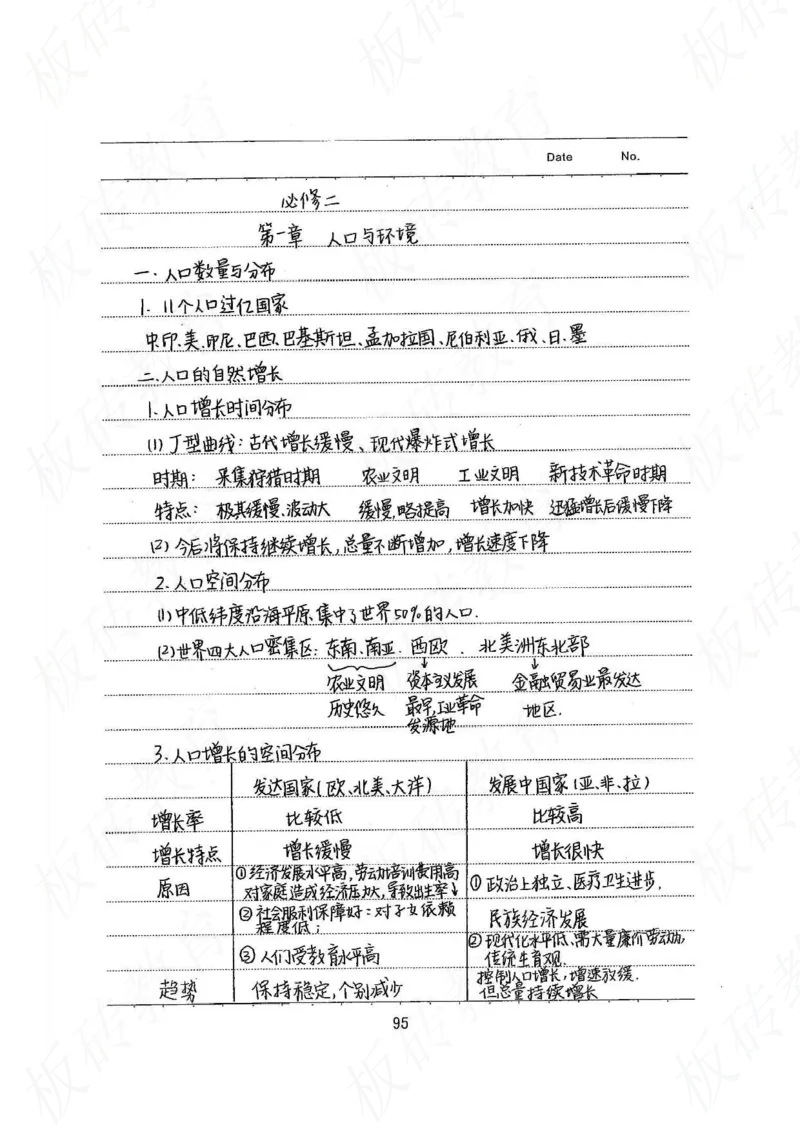 Date No.
必修二
第一章 人口与环境
一、人口数量与分布
1. 11个人口过亿国家
中、印、美、印尼、巴西、巴基斯坦、孟加拉国、尼伯利亚、俄、日、墨
二、人口的自然增长
1.人口增长时间分布
(1) J型曲线：古代增长缓慢、现代爆炸式增长
时期： 采集狩猎时期 农业文明 工业文明 新技术革命时期
特点： 极其缓慢、波动大 缓慢,略提高 增长加快 迅猛增长后缓慢下降
(2) 今后将保持继续增长,总量不断增加,增长速度下降
2.人口空间分布
(1)中低纬度沿海平原集中了世界50%的人口.
(2)世界四大人口密集区：东南、南亚、西欧、北美洲东北部
农业文明 资本主义发展 金融贸易业最发达
历史悠久 最早,工业革命 地区.
发源地
3.人口增长的空间分布
发达国家(欧、北美、大洋) 发展中国家(亚、非、拉)
增长率 比较低 比较高
增长特点 增长缓慢 增长很快
原因 ①经济发展水平高,劳动培训费用高 ①政治上独立、医疗卫生进步,
对家庭造成经济压力大,导致出生率↓
②社会服利保障好：对子女依赖 民族经济发展
程度低；
③人们受教育水平高 ②现代化水平低、需大量廉价劳动力,
传统生育观.
趋势 保持稳定,个别减少 控制人口增长,增速放缓.
但总量持续增长
95
板砖教育